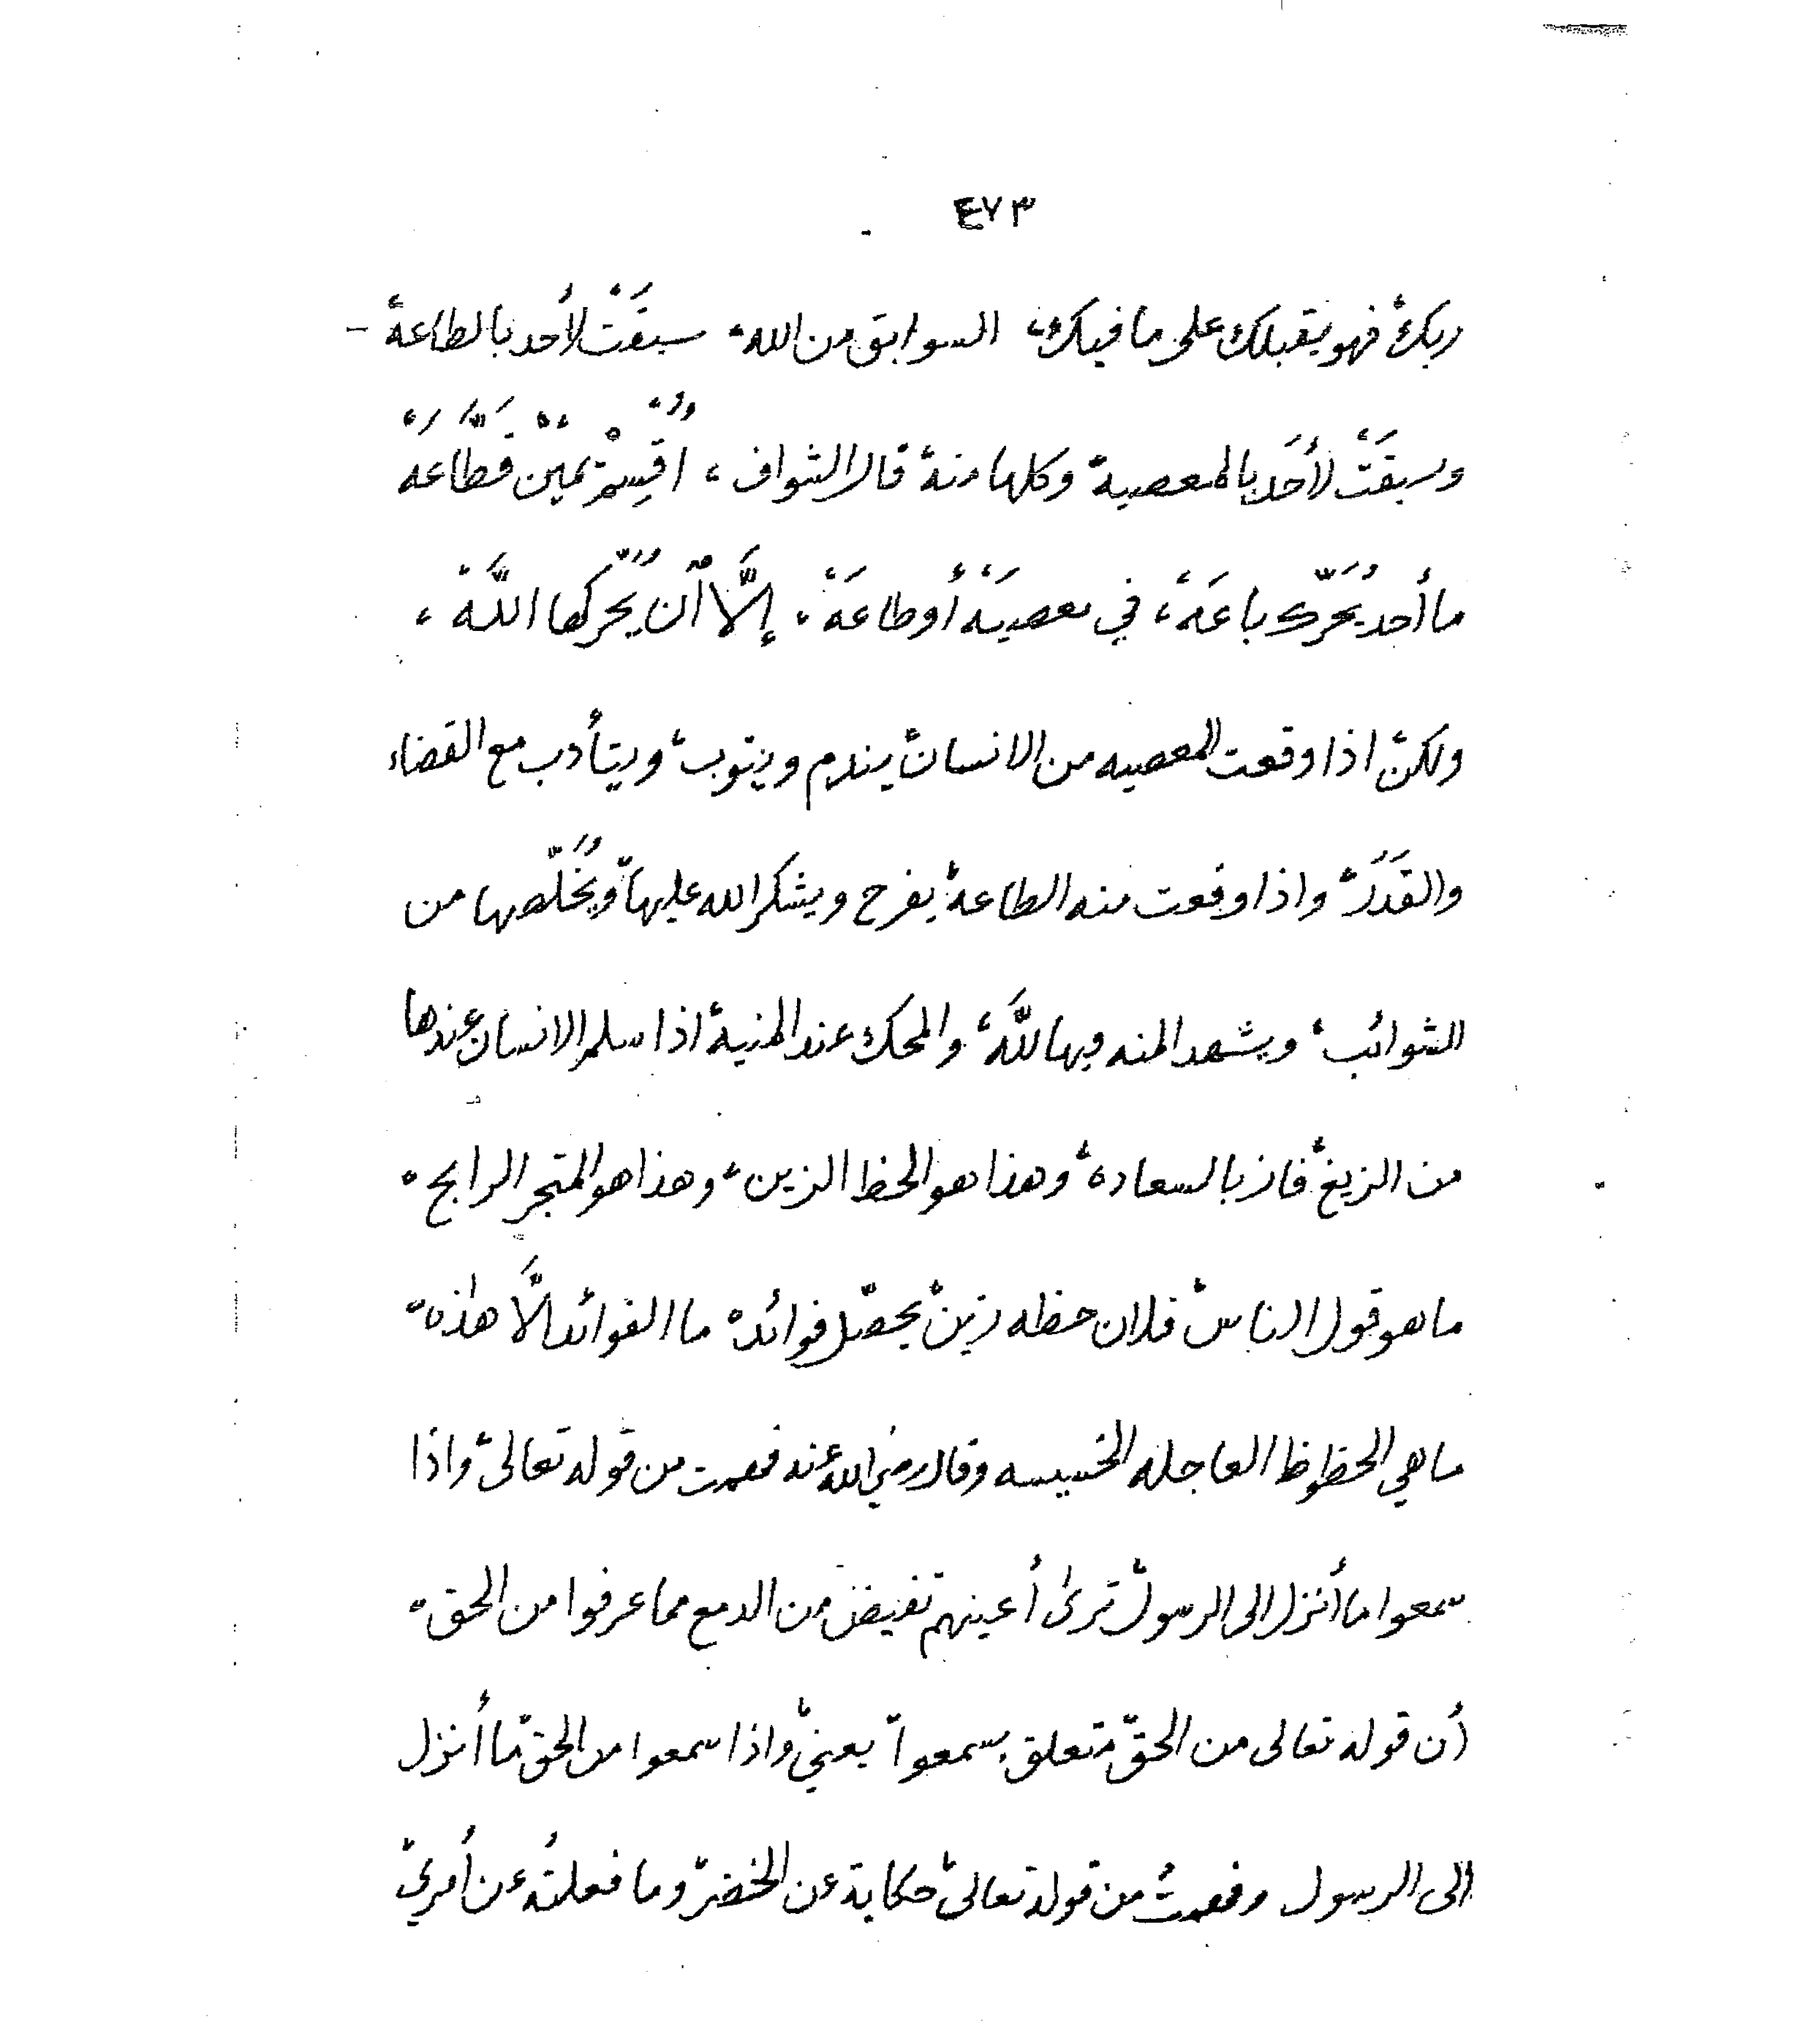 ٤٧٣
ربك، فهو يقبلك على ما فيك، السوابق من الله، سبقَتْ لأحد بالطاعة -
وسبقَتْ لأحَد بالمعصية، وكلها منة، قال الشواف، اُقْسِمْ يَمِيْن قَطَّاعَهْ
ما أحد يُحَرّك باعَهْ، في معصيَهْ أو طاعَهْ، إلَّا أن يُحَرّكها اللَّهْ،
ولكن، اذا وقعت المعصيه من الانسان، يندم ويتوب، ويتأدب مع القضاء
والقَدَر، واذا وقعت منه الطاعة، يفرح ويشكر الله عليها، ويُخَلّصها من
الشوائب، ويشهد المنه فيها للَّه، والمحك عند المنية، اذا سلم الانسان عندها
من الزيغ، فاز بالسعاده، وهذا هو الحظ الزين، وهذا هو المتجر الرابح،
ما هو قول الناس، فلان حظه زين، يحصّل فوائد، ما الفوائد الَّا هذه،
ما هي الحظوظ العاجله الخسيسه وقال رضي الله عنه فهمت من قوله تعالى، واذا
سمعوا ما أنزل الى الرسول ترى أعينهم تفيض من الدمع مما عرفوا من الحق،
أن قوله تعالى من الحق، متعلق بسمعوا، يعني، واذا سمعوا من الحق ما أنزل
الى الرسول وفهمتُ من قوله تعالى، حكاية عن الخضر، وما فعلتُه عن أمري،